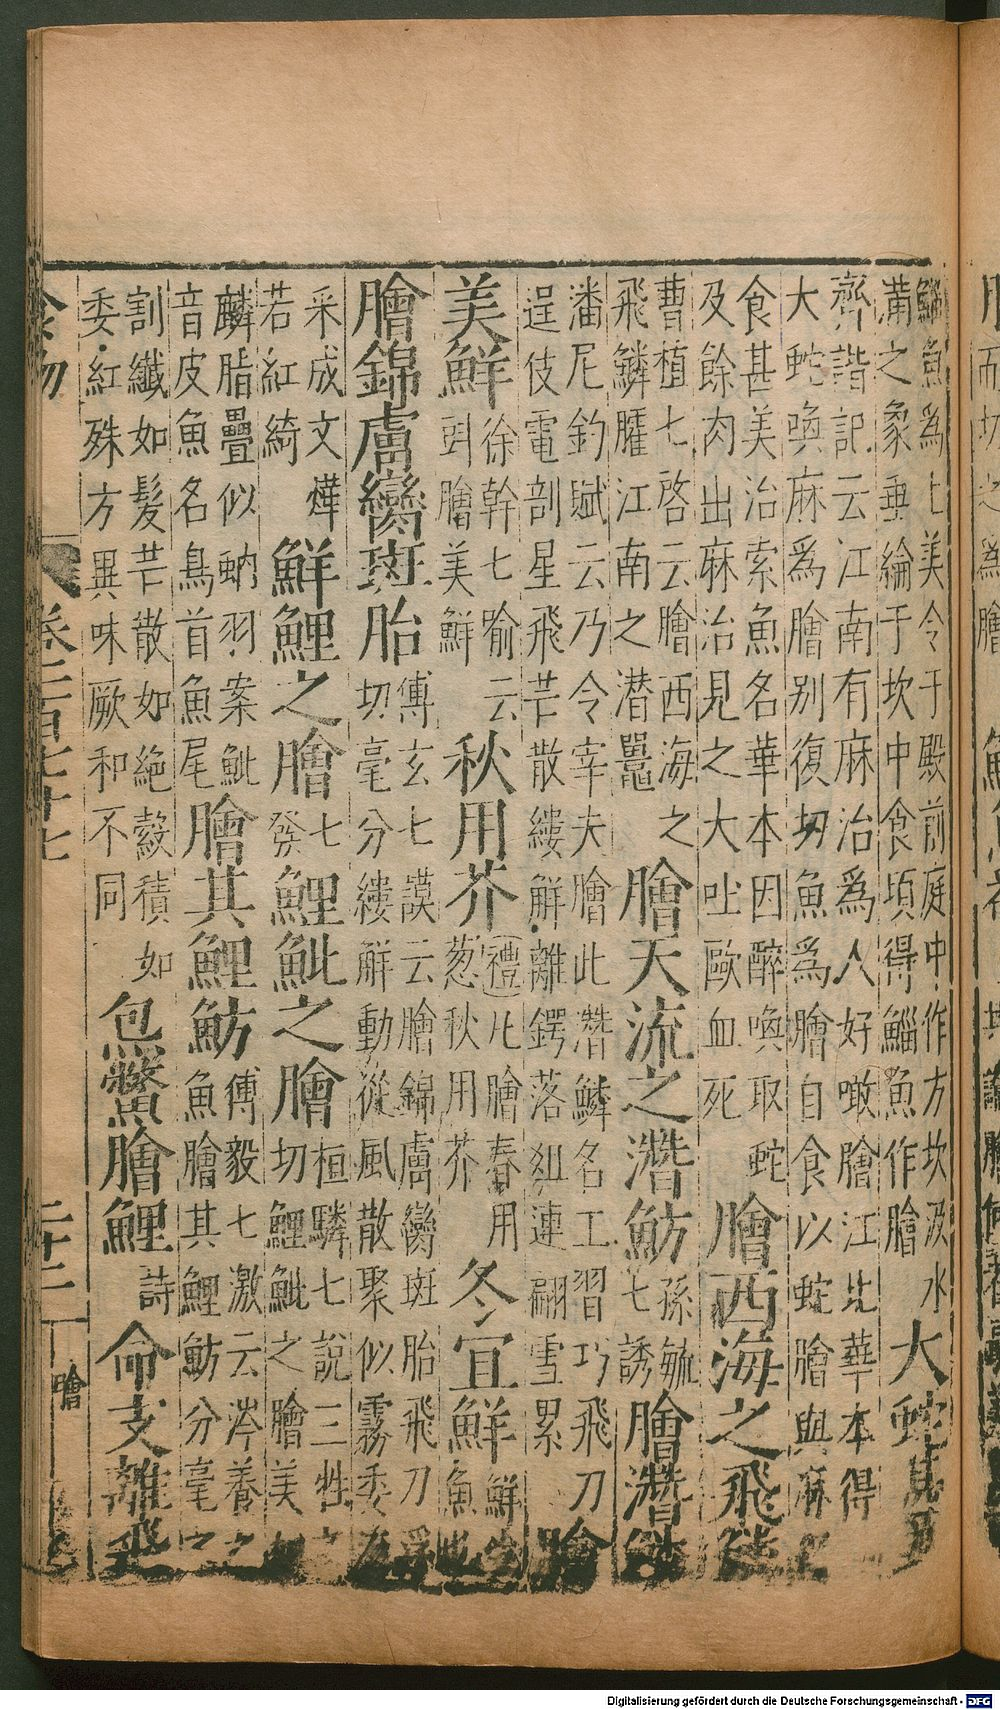 鯔魚爲上美令于殿前庭中作方坎汲水
滿之象垂綸于坎中食頃得鯔魚作膾
大蛇
齊諧記云江南有麻治爲人好噉膾江北華本得
大蛇喚麻爲膾別復切魚爲膾自食以蛇膾與麻
食甚美治索魚名華本因醉喚取蛇
及餘肉出麻治見之大吐歐血死
膾西海之飛鱗
曹植七啓云膾西海之
飛鱗臛江南之潜鼉
膾天流之潛魴
孫毓
七誘
膾潛鱗
潘尼釣賦云乃令宰夫膾此潛鱗名工習巧飛刀
逞伎電剖星飛芒散縷解離鍔落俎連翩雪累
膾
美鮮
徐幹七喻云
剅膾美鮮
秋用芥
禮凡膾春用
葱秋用芥
冬宜鮮
鮮
魚也
膾錦膚臠斑胎
傅玄七謨云膾錦膚臠斑胎飛刀浮
切毫分縷解動從風散聚似霧委
采成文燁
若紅綺
鮮鯉之膾
七
癸
鯉魮之膾
桓驎七說三牲之
切鯉魮之膾美
麟脂疊似蚋羽案魮
音皮魚名鳥首魚尾
膾其鯉魴
傅毅七激云涔養之
魚膾其鯉魴分毫之
割纖如髮芒散如絶縠積如
委紅殊方異味厥和不同
包鱉膾鯉
詩
命支離飛
食物
卷二百七十七
二十二
膾
Digitalisierung gefördert durch die Deutsche Forschungsgemeinschaft - DFG